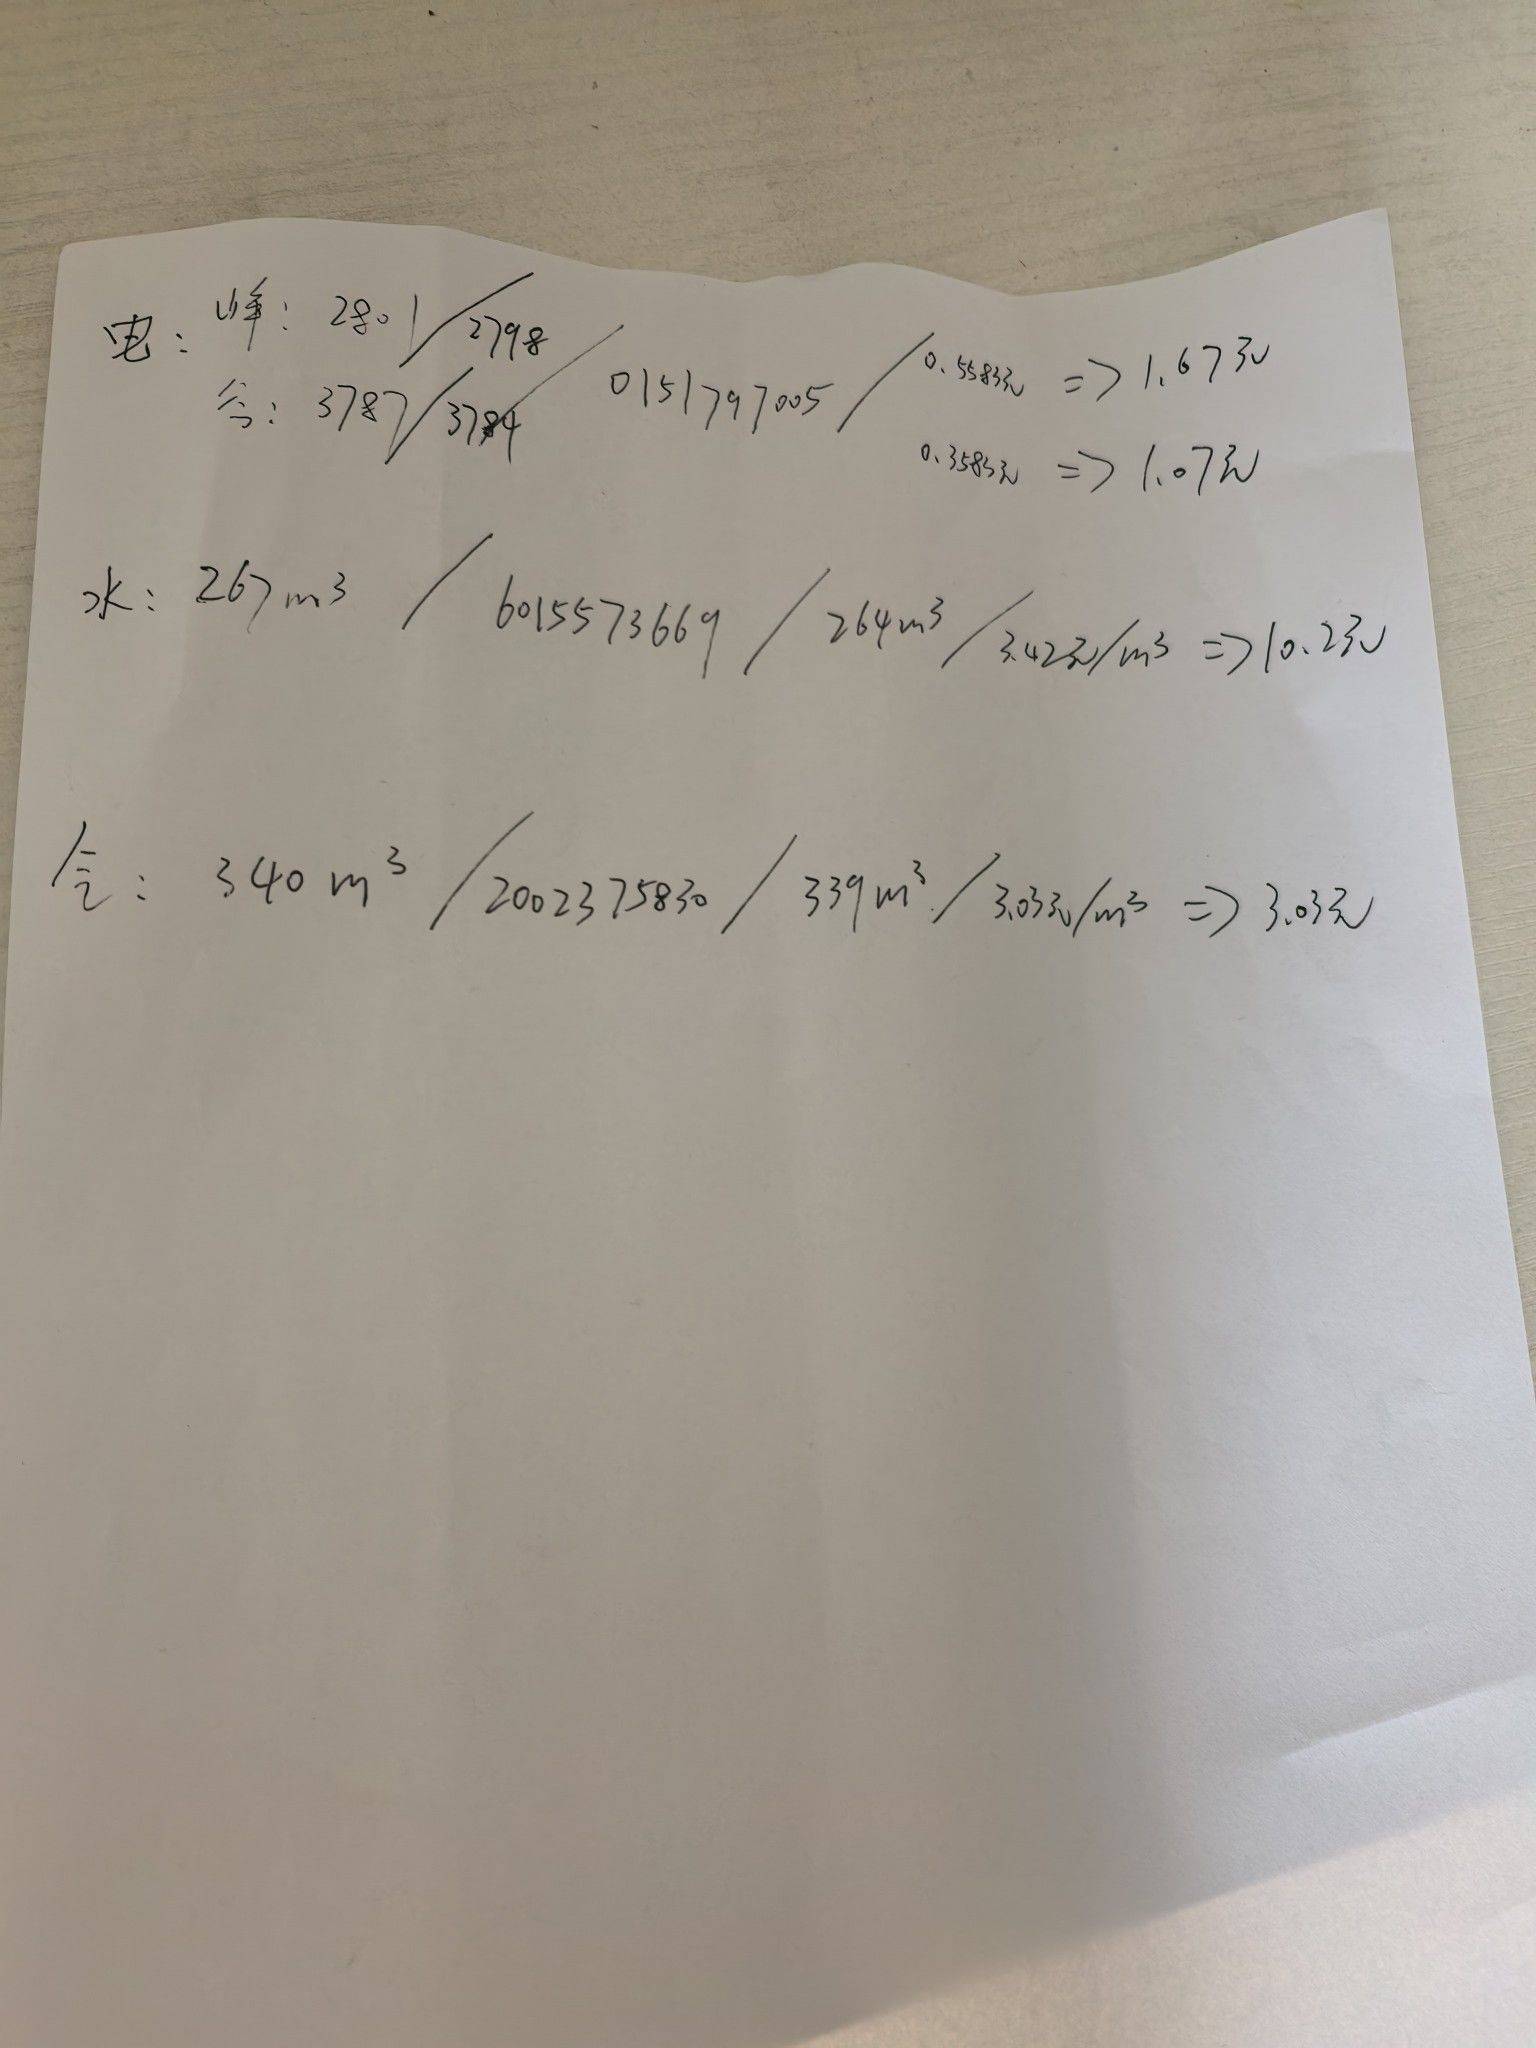 电: 峰: 2801/2798/0151797005/0.5583元 => 1.67元
谷: 3787/3784 0.3583元 => 1.07元
水: 267m³/6015573669/264m³/3.42元/m³ => 10.2元
气: 340m³/2002375830/339m³/3.03元/m³ => 3.03元